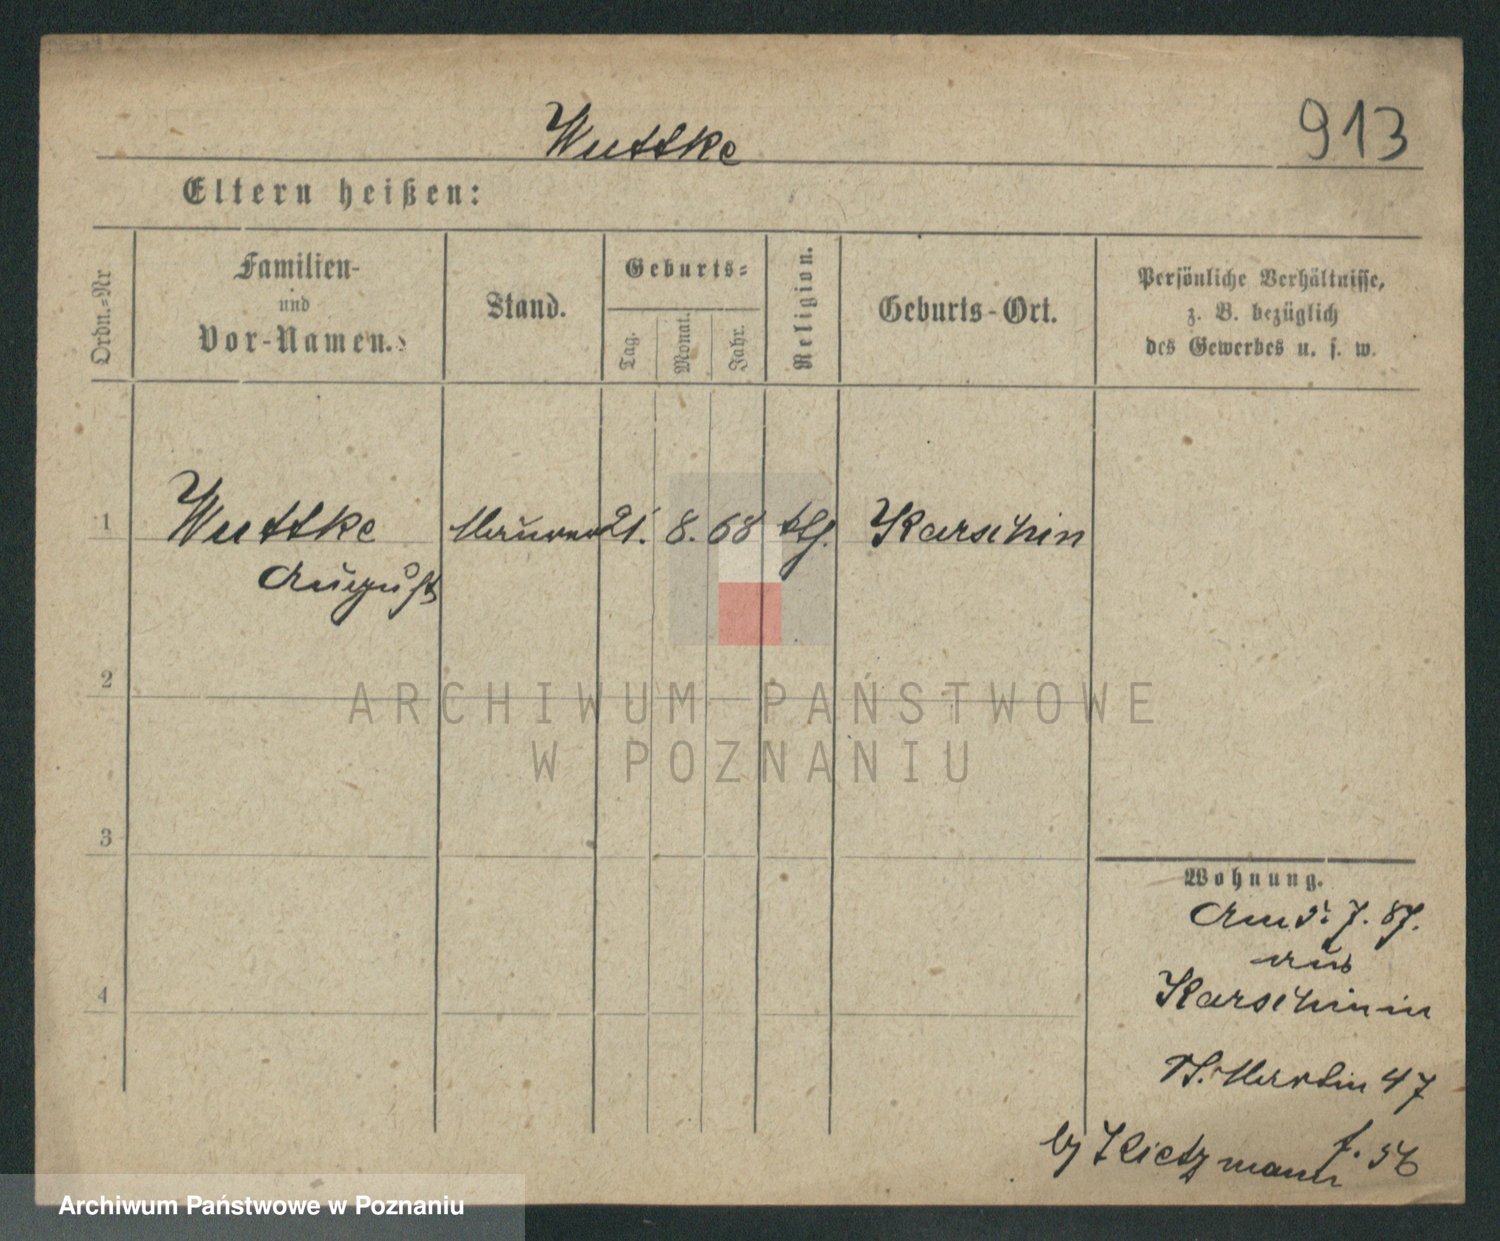 Wuttke
913
Eltern heißen:
Ordn.-Nr
Familien-
und
Vor-Namen.
Stand.
Geburts-
Tag.
Monat.
Jahr.
Religion.
Geburts-Ort.
Persönliche Verhältnisse,
z. B. bezüglich
des Gewerbes u. s. w.
1 Wuttke Maurer 21. 8. 68 ktl. Karschin
August
2
ARCHIWUM PAŃSTWOWE
W POZNANIU
3
Wohnung.
Am 5. 7. 87.
aus
4
Karschin in
St. Martin 47
by Kietzmann f. 56
Archiwum Państwowe w Poznaniu